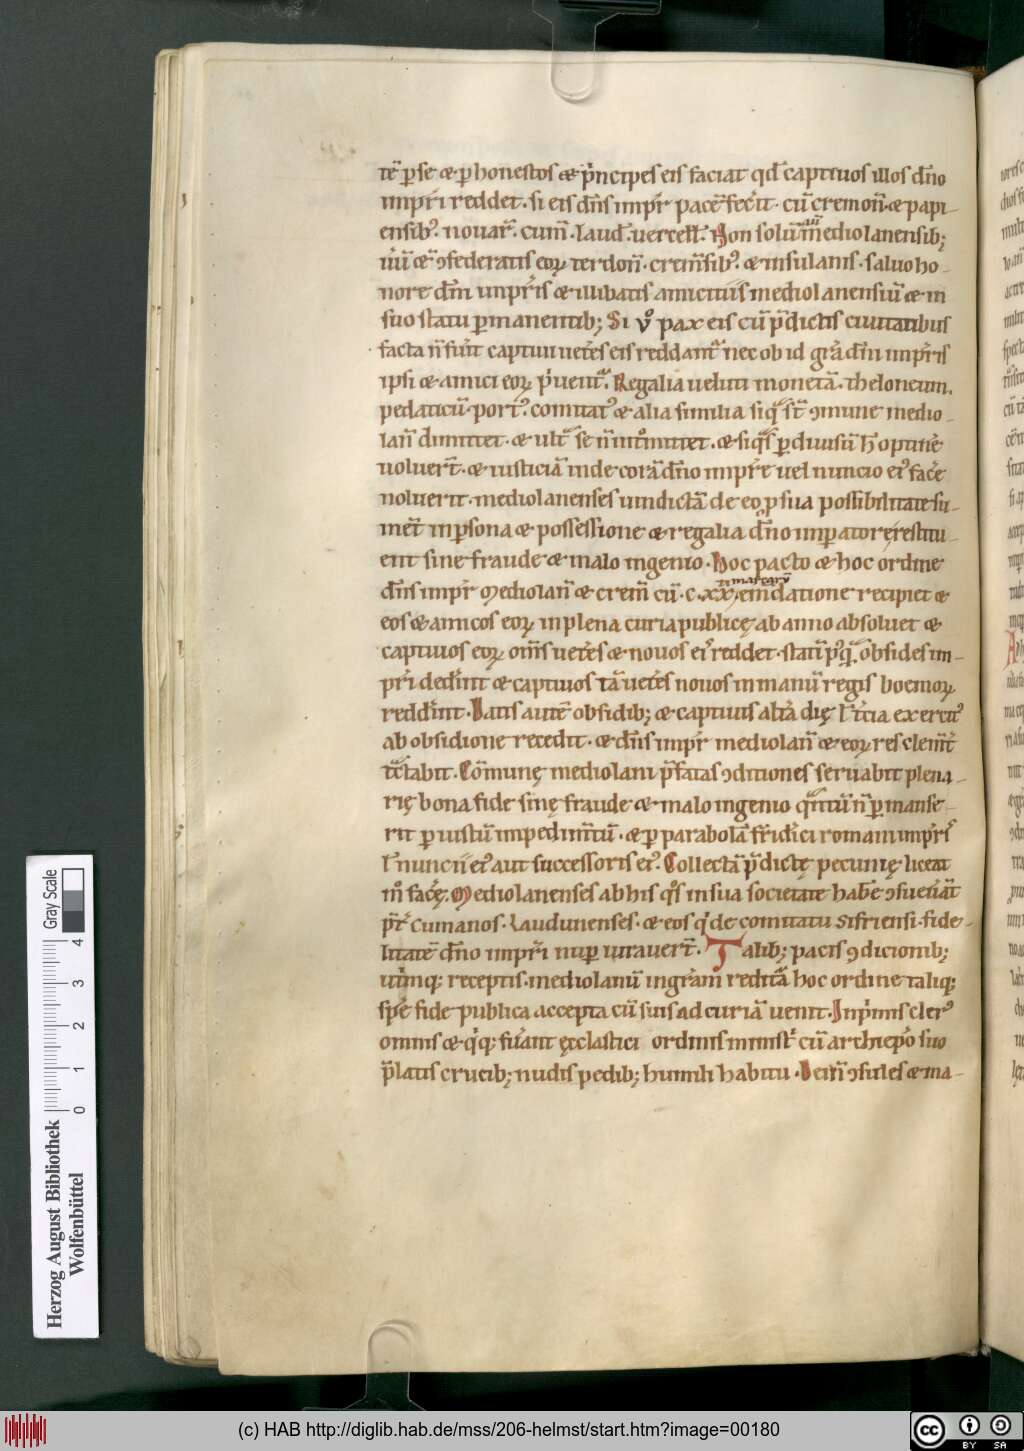 tē ꝑ se & ꝑ honestos & pͥncipes eis faciat qđ captiuos illos dn̄o
impr̄i reddet. si eis dn̄s impr̄ pacē fec̄it. cū cremon̄. & papi-
ensibꝰ. nouar̄. cum̄. laud̄. uercell̄. Non solū mediolanensib;
& ꝯfederatis eoꝝ terdon̄. crem̄sibꝰ. & insulanis. saluo ho-
nore dn̄i impr̄is & illibatis amicitiis mediolanensiū & in
suo statu ꝑmanentib; Si v̊ pax eis cū p̄dictis ciuitatibus
facta n̄ fu̓it captiui uet̓es eis reddant᷑ nec ob id gr̄a dn̄i impr̄is
ipsi & amici eoꝝ pͥuent᷑. Regalia ueluti monetā. theloneum.
pedaticū. portꝰ. comitatꝰ & alia similia siq̄ st̄ ꝯmune medio-
lan̄ dimittet. & ult᷑ se n̄ intͦmittet. & siq̄s ꝑ diuisū h̄ optine̓
uoluerit̄. & iusticiā inde corā dn̄o impr̄e uel nuncio eiꝰ fac̓e
noluerit. mediolanenses uindictā de eo ꝓ sua possibilitate su-
met̄ in ꝑsona & possessione & regalia dn̄o impatorę restitu-
ent sine fraude & malo ingenio. Hoc pacto & hoc ordine
marcarū
dn̄s impr̄ mediolan̄ & crem̄ cū. c. xx. em̄datione recipiet &
eos & amicos eoꝝ in plena curia publicę ab anno absoluet &
captiuos eoꝝ om̄s uet̓es & nouos eiꝰ reddet. statī pꝰq̄ obsides im-
pr̄i ded̓int & captiuos tā uet̓es nouos in manū regis boemoꝝ
redd̓int. Datis autē obsidib; & captiuis alt̓a dię ł t̓cia exercitꝰ
ab obsidione recedit. & dn̄s impr̄ mediolan̄ & eoꝝ res clem̄t̓
tc̄tabit. Cōmunę mediolani p̄fatas ꝯditiones seruabit plena-
rię bona fide sinę fraude & malo ingenio qͣntū n̄ ꝑmanse-
rit ꝑ iustū impedim̄tū. & ꝑ parabolā frid̓ici romani impr̄is
ł nuncii eiꝰ aut successoris eiꝰ. Collectā p̄dictę pecunię liceat
m̊ fac̓ę. Mediolanenses ab his qͥs in sua societate hab̓e ꝯsueu̓āt
p̄t̓ cumanos. Laudunenses. & eos qͥ de comitatu sifriensi. fide-
litatē dn̄o impr̄i nuꝑ iurauer̄t. Talib; pacis ꝯdicionib;
utͥmq; receptis. mediolanū in gr̄am redit᷑a hoc ordine taliq;
spē fide publica accepta cū suis ad curiā uenit. Inpͥmis clerꝰ
omnis & qͥq; fu̓ant ęcclastici ordinis ministͥ cū archiep̄o suo
p̄latis crucib; nudis pedib; humili habitu. Dein̄ ꝯsules & ma-
Herzog August Bibliothek
Wolfenbüttel
0 1 2 3 4
Gray Scale
(c) HAB http://diglib.hab.de/mss/206-helmst/start.htm?image=00180
cc BY SA